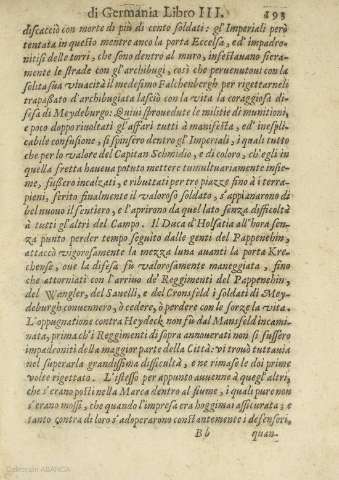 di Germania Libro III. 193
discacciò con morte di più di cento soldati: gl'Imperiali però
tentata in questo mentre anco la porta Eccelsa, ed'impadro-
nitisi delle torri, che sono dentro al muro, infestauano fiera-
mente le strade con gl'archibugi, così che peruenutoui con la
solita sua viuacità il medesimo Falchenbergh per rigettarneli
trapaßato d'archibugiata lasciò con la vita la coraggiosa di-
fesa di Meydeburgo: Quiui sprouedute le militie di munitioni,
e poco doppo riuoltati gl'affari tutti à manifesta, ed'inespli-
cabile confusione, si spinsero dentro gl'Imperiali, i quali tutto
che per lo valore del Capitan Schmidio, e di coloro, ch'egli in
quella fretta haueua potuto mettere tumultuariamente insie-
me, fußero incalzati, e ributtati per tre piazze fino à i terra-
pieni, ferito finalmente il valoroso soldato, s'appianarono di
bel nuouo il sentiero, e l'aprirono da quel lato senza difficoltà
à tutti gl'altri del Campo. Il Duca d'Holsatia all'hora sen-
za punto perder tempo seguito dalle genti del Pappenehin,
attaccò vigorosamente la mezza luna auanti la porta Kre-
chense, oue la difesa fù valorosamente maneggiata, fino
che attorniati con l'arriuo de' Reggimenti del Pappenehim,
del Wangler, del Sauelli, e del Cronsfeld i soldati di Mey-
deburgh conuennero, ò cedere, ò perdere con le forze la vita.
L'oppugnatione contra Heydeck non fù dal Mansfeld incami-
nata, prima ch'i Reggimenti di sopra annouerati non si fussero
impadroniti della maggior parte della Città: vi trouò tuttauia
nel superarla grandissima difficoltà, e ne rimase le doi prime
volte rigettato. L'istesso per appunto auuenne à quegl'altri,
che s'erano posti nella Marca dentro al fiume, i quali pure non
s'erano mossi, che quando l'impresa era hoggimai assicurata; e
tanto contra di loro s'adoperarono constantemente i defensori,
Bb quan-
Colección ABANCA